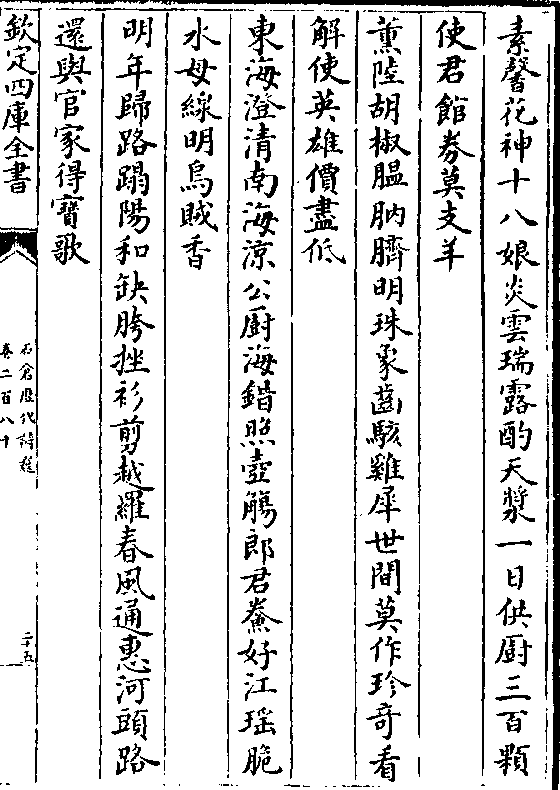 素馨花神十八娘炎雲瑞露酌天漿一日供厨三百顆
使君館券莫支羊
薫陸胡椒膃肭臍明珠象齒駭雞犀世間莫作珍奇看
解使英雄價盡低
東海澄清南海涼公厨海錯照壺觴郎君鮝好江瑶脆
水母線明烏賊香
明年歸路蹋陽和缺胯挫衫剪越羅春風通惠河頭路
還與官家得寶歌
欽定四庫全書
石倉歷代詩選
卷二百八十
二十五